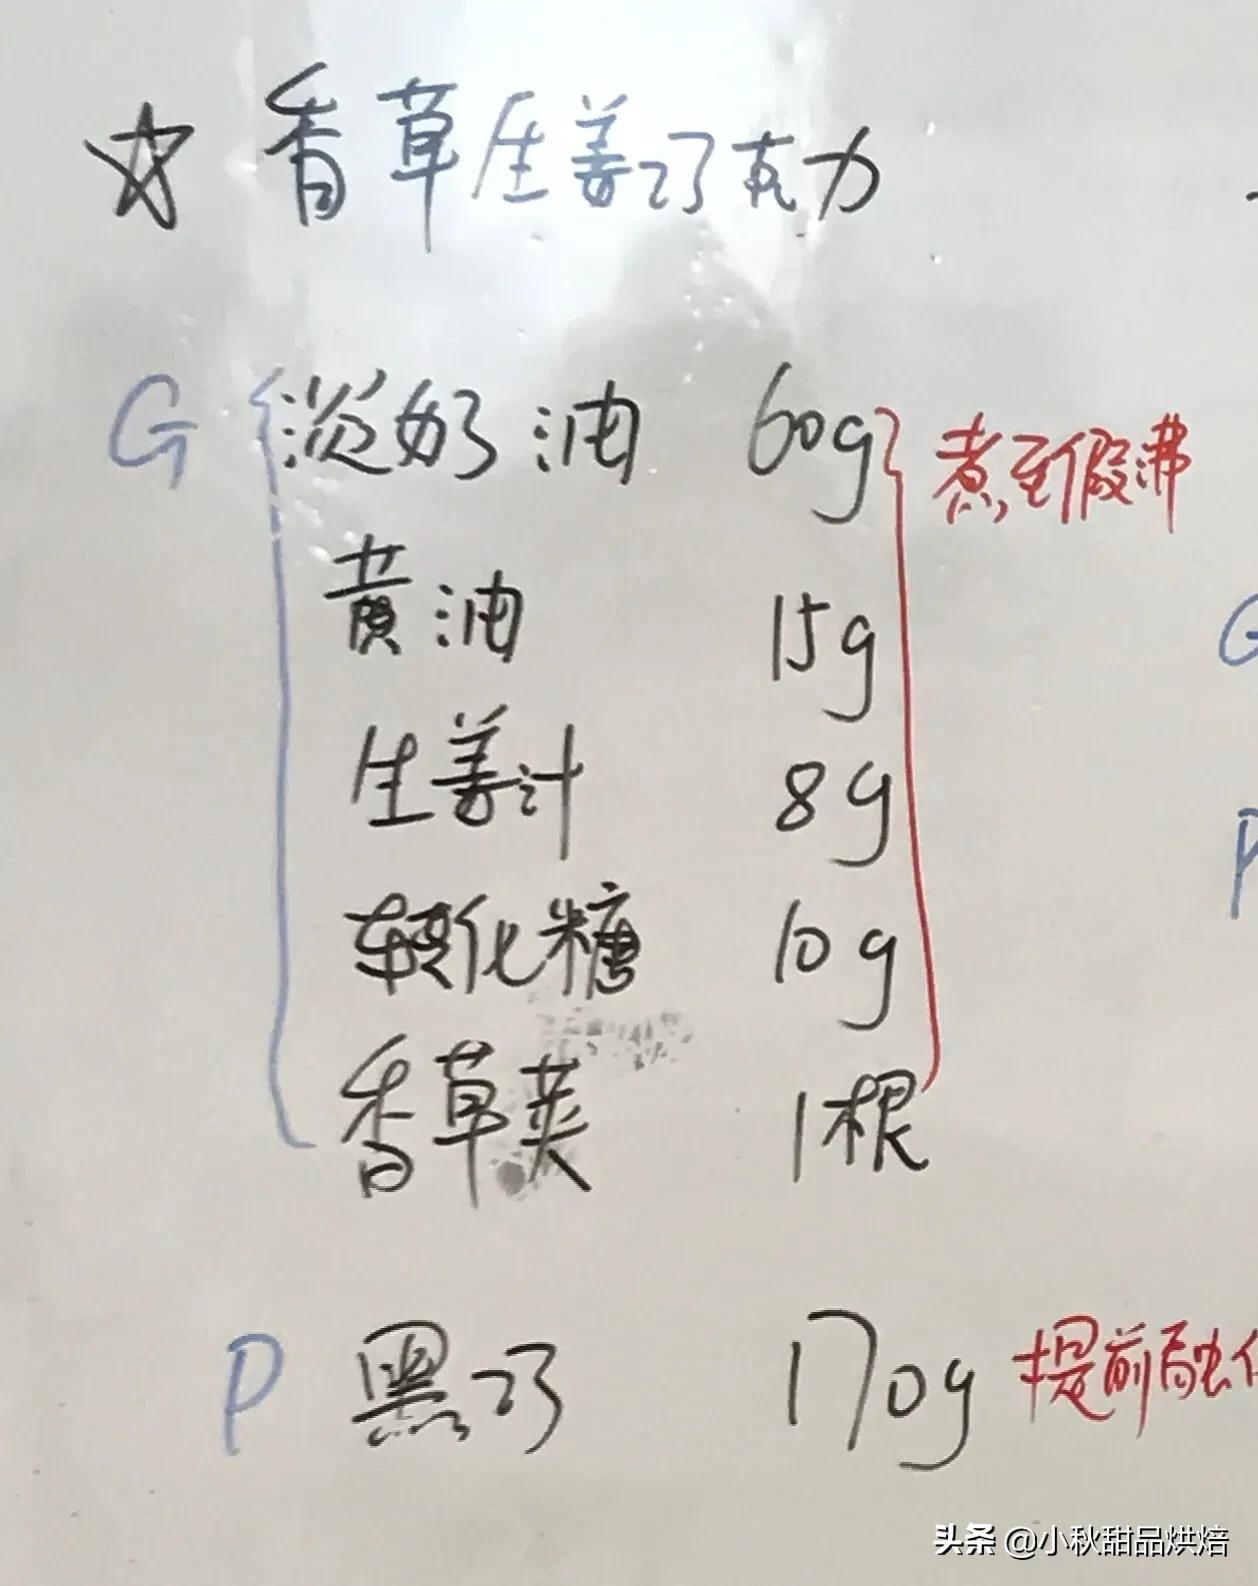 ☆ 香草生姜巧克力
G 淡奶油 60g 煮至假沸
黄油 15g
生姜汁 8g
转化糖 10g
香草荚 1根
P 黑巧 170g 提前融化
G
P
头条 @小秋甜品烘焙